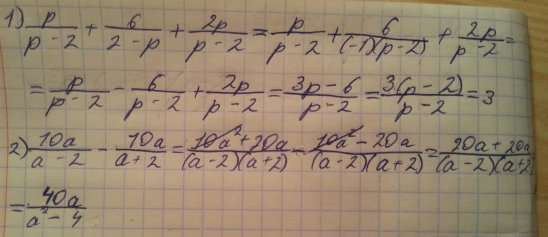 1) p/(p-2) + 6/(2-p) + 2p/(p-2) = p/(p-2) + 6/((-1)(p-2)) + 2p/(p-2) =
= p/(p-2) - 6/(p-2) + 2p/(p-2) = (3p-6)/(p-2) = 3(p-2)/(p-2) = 3
2) 10a/(a-2) - 10a/(a+2) = (10a²+20a)/((a-2)(a+2)) - (10a²-20a)/((a-2)(a+2)) = (20a+20a)/((a-2)(a+2)
= 40a/(a²-4)